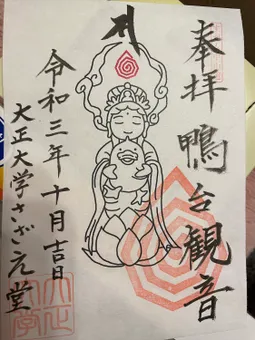 奉拝
鴨台観音
令和三年十月吉日
大正大学さざえ堂